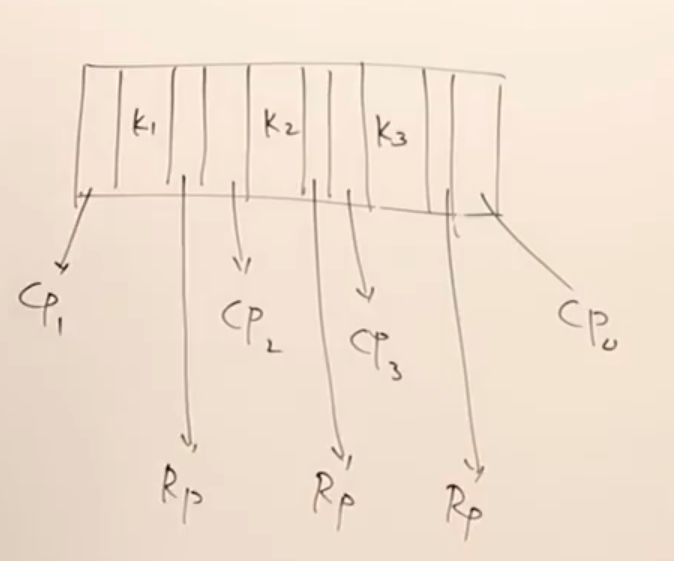 K₁ K₂ K₃
CP₁ CP₂ CP₃ CP₄
Rp Rp Rp